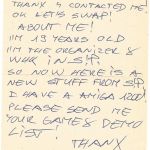 THANX 4 CONTACTED ME.
OK LET'S SWAP!
ABOUT ME!
I'M 19 YEARS OLD
I'M THE ORGANIZER &
WORK IN S!P!
SO NOW HERE IS A
NEW STUFF FROM S!P
I HAVE A AMIGA 1200!
PLEASE SEND ME
YOUR GAMES DEMO
LIST!
THANX